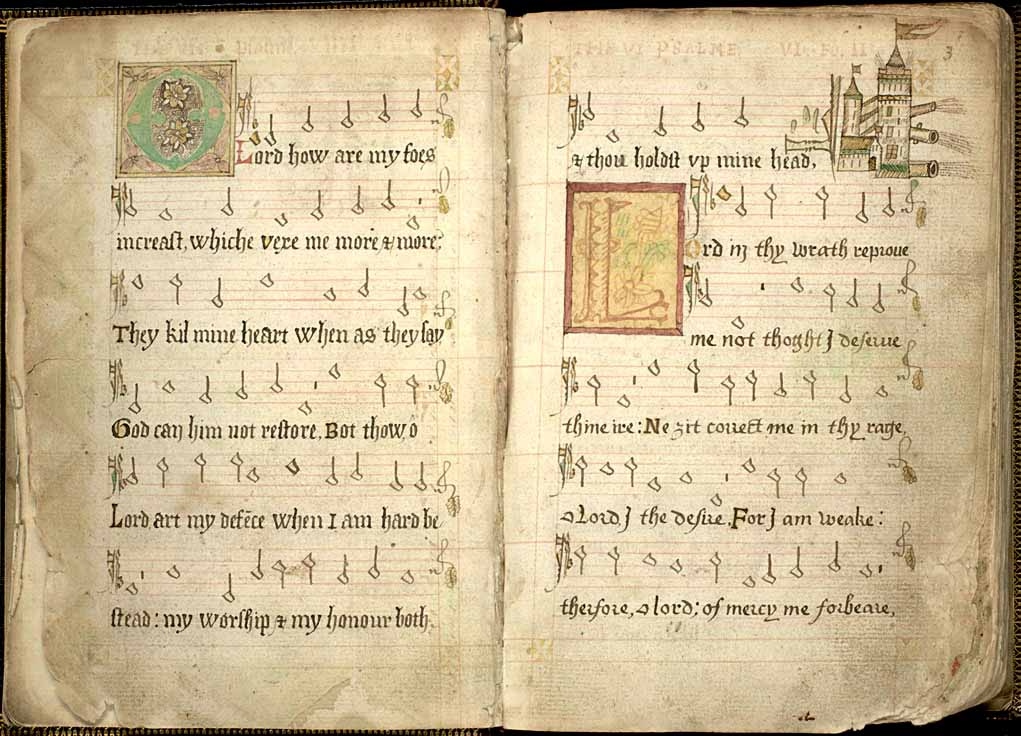 O
Lord how are my foes
increast, whiche vexe me more & more:
They kil mine heart when as they say
God can him not restore. Bot thow, ô
Lord, art my defēce when I am hard be
stead: my worship & my honour both.
THE VI PSALME VI Fo. II
3
& thou holdst vp mine head,
L
ord in thy wrath reproue
me not thoght J deserue
thine ire: Ne zit correct me in thy rage,
o Lord, J the desire. For J am weake:
therfore, o lord; of mercy me forbeare,